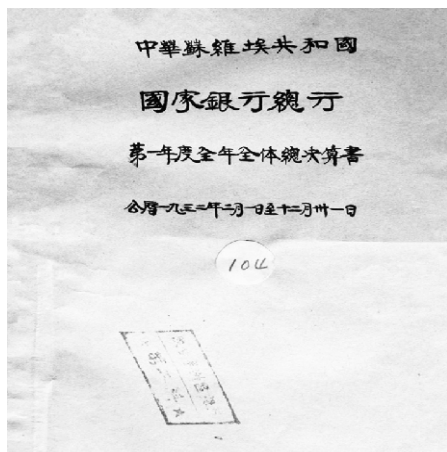 中華蘇維埃共和國
國家銀行總行
第一年度全年全体總决算書
公曆一九三二年二月一日至十二月卅一日
104